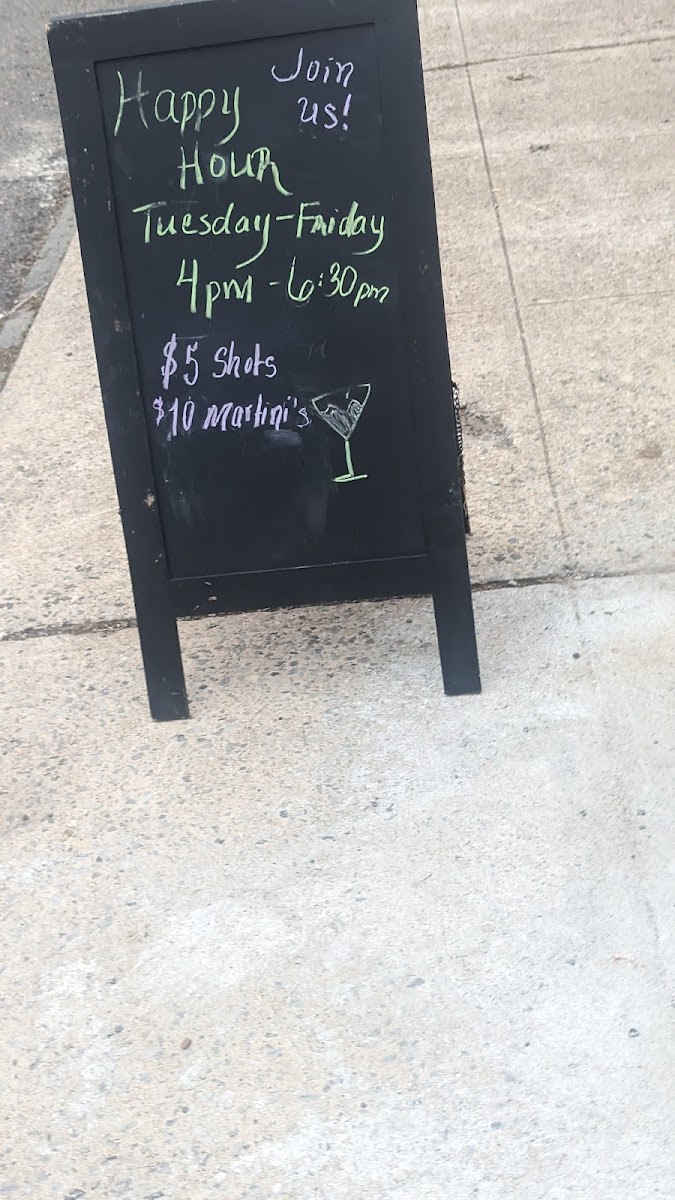 Join
us!
Happy
Hour
Tuesday-Friday
4pm - 6:30pm
$5 Shots
$10 Martini's